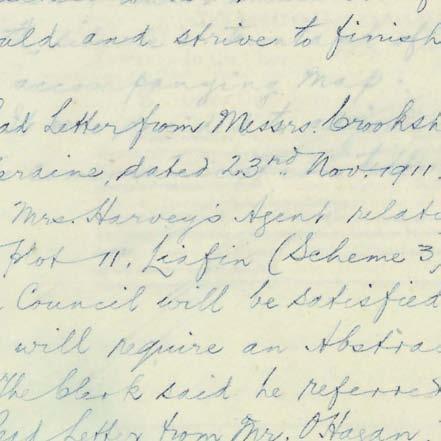 uld and strive to finish
accompanying Map.
ad Letter from Messrs. Crooksh
eraine, dated 23rd. Nov. 1911.
Mrs. Harvey's Agent relat
Plot 11. Lisfin (Scheme 3
Council will be satisfied
will require an Abstrac
The Clerk said he referred
ad Letter from Mr. O'Hagan